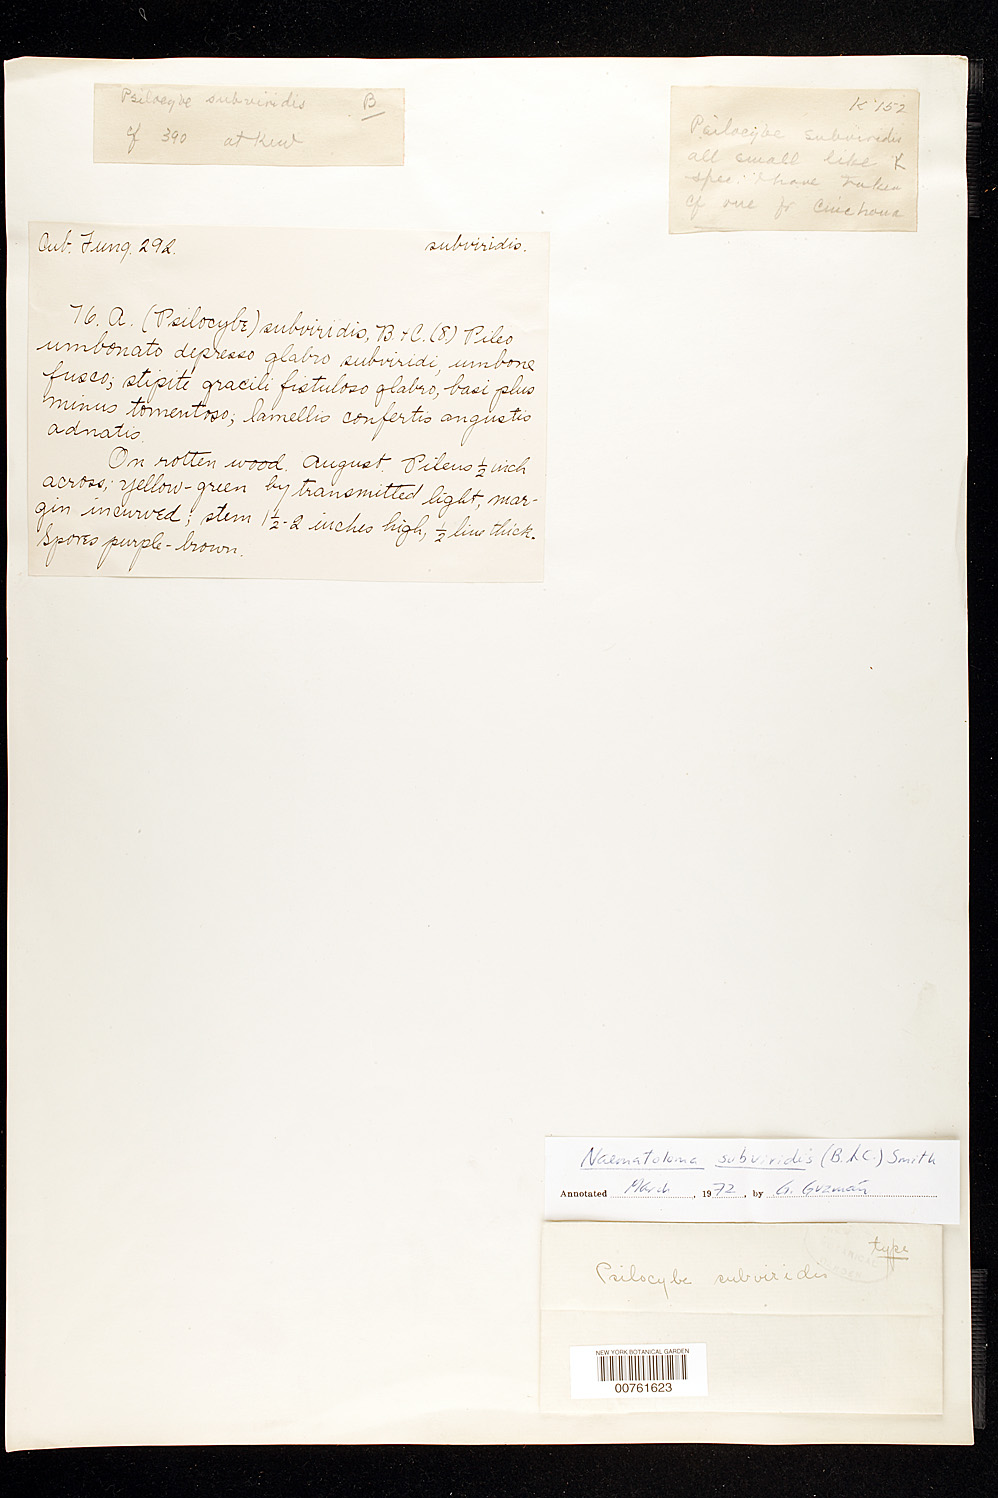 Psilocybe subviridis B
cf 390 at Kew
K 152
Psilocybe subviridis
all small like K
spec. I have taken
cf one fr Cinchona
Cub. Fung. 292. subviridis.
76. A. (Psilocybe) subviridis, B. & C. (8) Pileo
umbonato depresso glabro subviridi, umbone
fusco; stipite gracili fistuloso glabro, basi plus
minus tomentoso; lamellis confertis angustis
adnatis.
On rotten wood. August. Pileus ½ inch
across; yellow-green by transmitted light, mar-
gin incurved; stem 1½-2 inches high, ½ line thick.
Spores purple-brown.
Naematoloma subviridis (B. & C.) Smith
Annotated March, 1972, by G. Guzmán
type
Psilocybe subviridis
NEW YORK BOTANICAL GARDEN
00761623